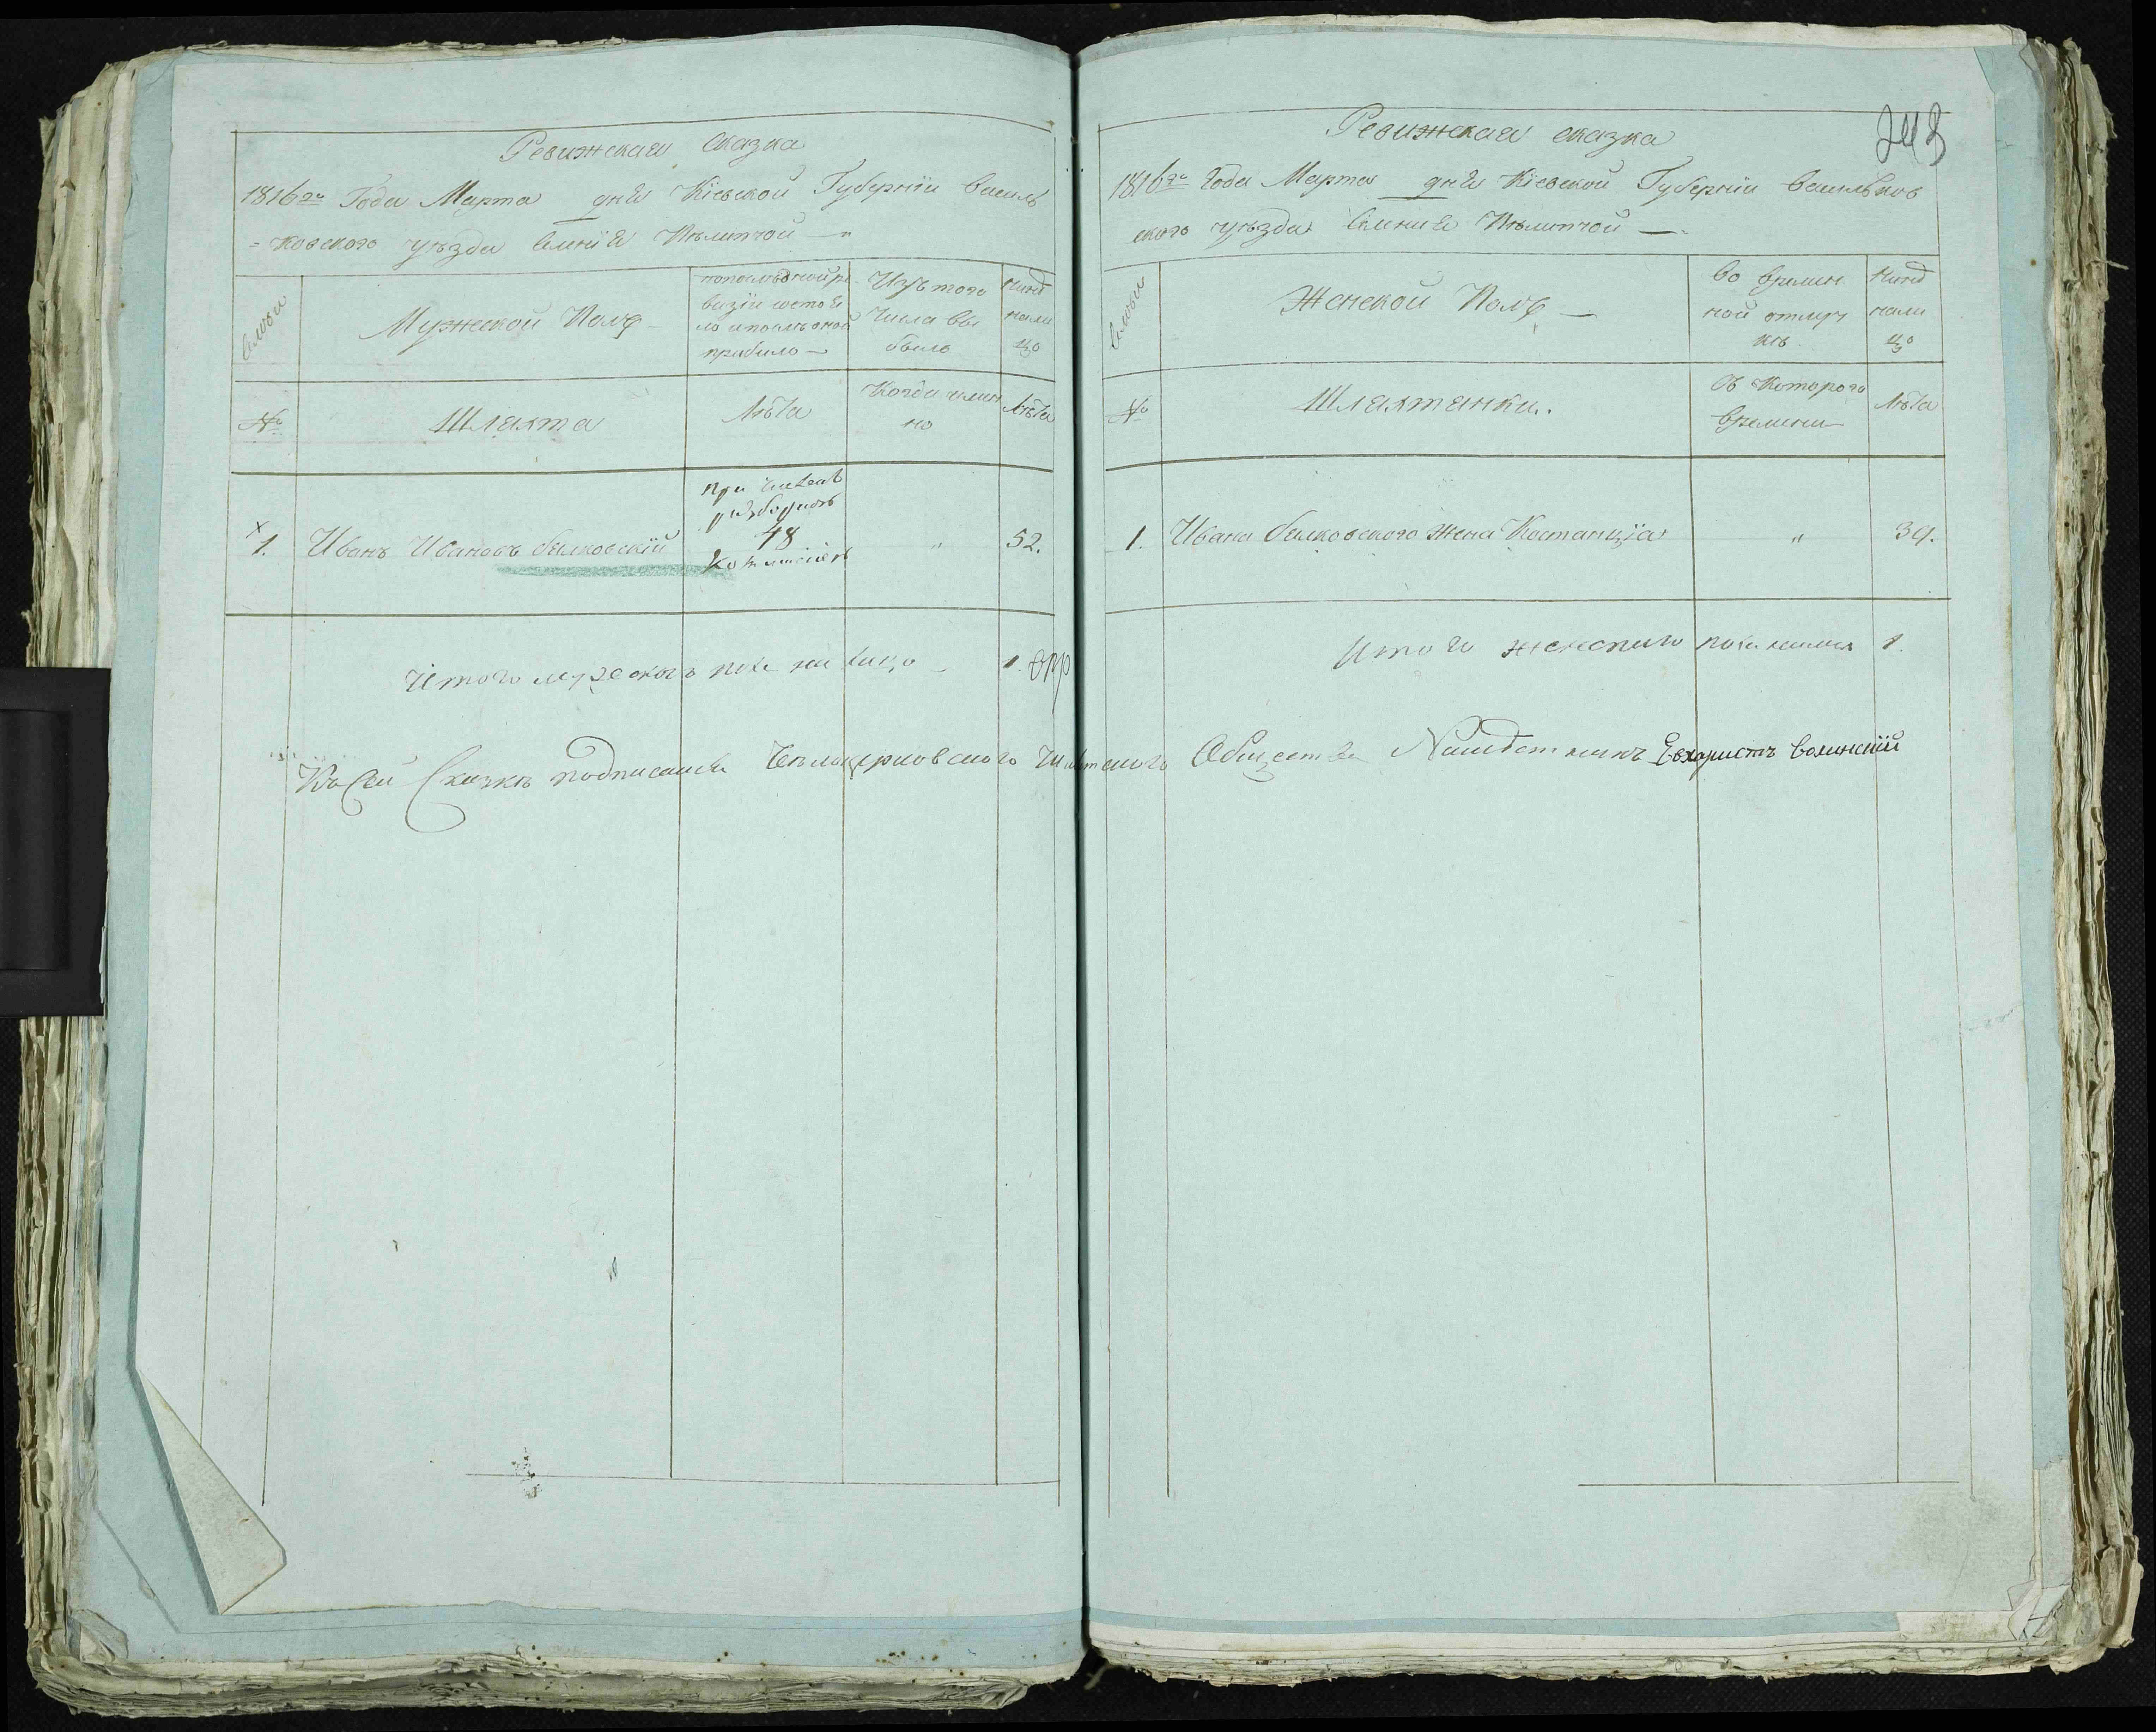 Ревижская сказка
1816го Года Марта дня Кіевской Губерніи Василь
=ковского уезда Селнія Пѣлитчой
Семьи
Мужской Полъ
попослѣдной ре
визіи состоя
ло и послѣ оной
прибыло
Изъ того
Числа вы
было
Нинѣ
нали
цо
№
Шляхта
Лѣта
Когда имен
но
Лѣта
при бывшей
разборной
1. Иванъ Ивановъ Билковскій 48 " 52.
Комисіи
Итого мужеского пола на лицо 1.
Ревижская сказка
243
1816го Года Марта дня Кіевской Губерніи Васильков
ского уезда Селнія Пѣлитчой
Семьи
Женской Полъ
во времен
ной отлуч
кѣ
Нинѣ
нали
цо
№
Шляхтянки.
Съ Которого
времени
Лѣта
1. Ивана Билковского Жена Костанція " 39.
Итого женского пола налицо 1.
Къ Сей Сказкѣ подписался Бѣлоцерковского Шляхетского Общества Намѣстникъ Евхаристъ Волинскій